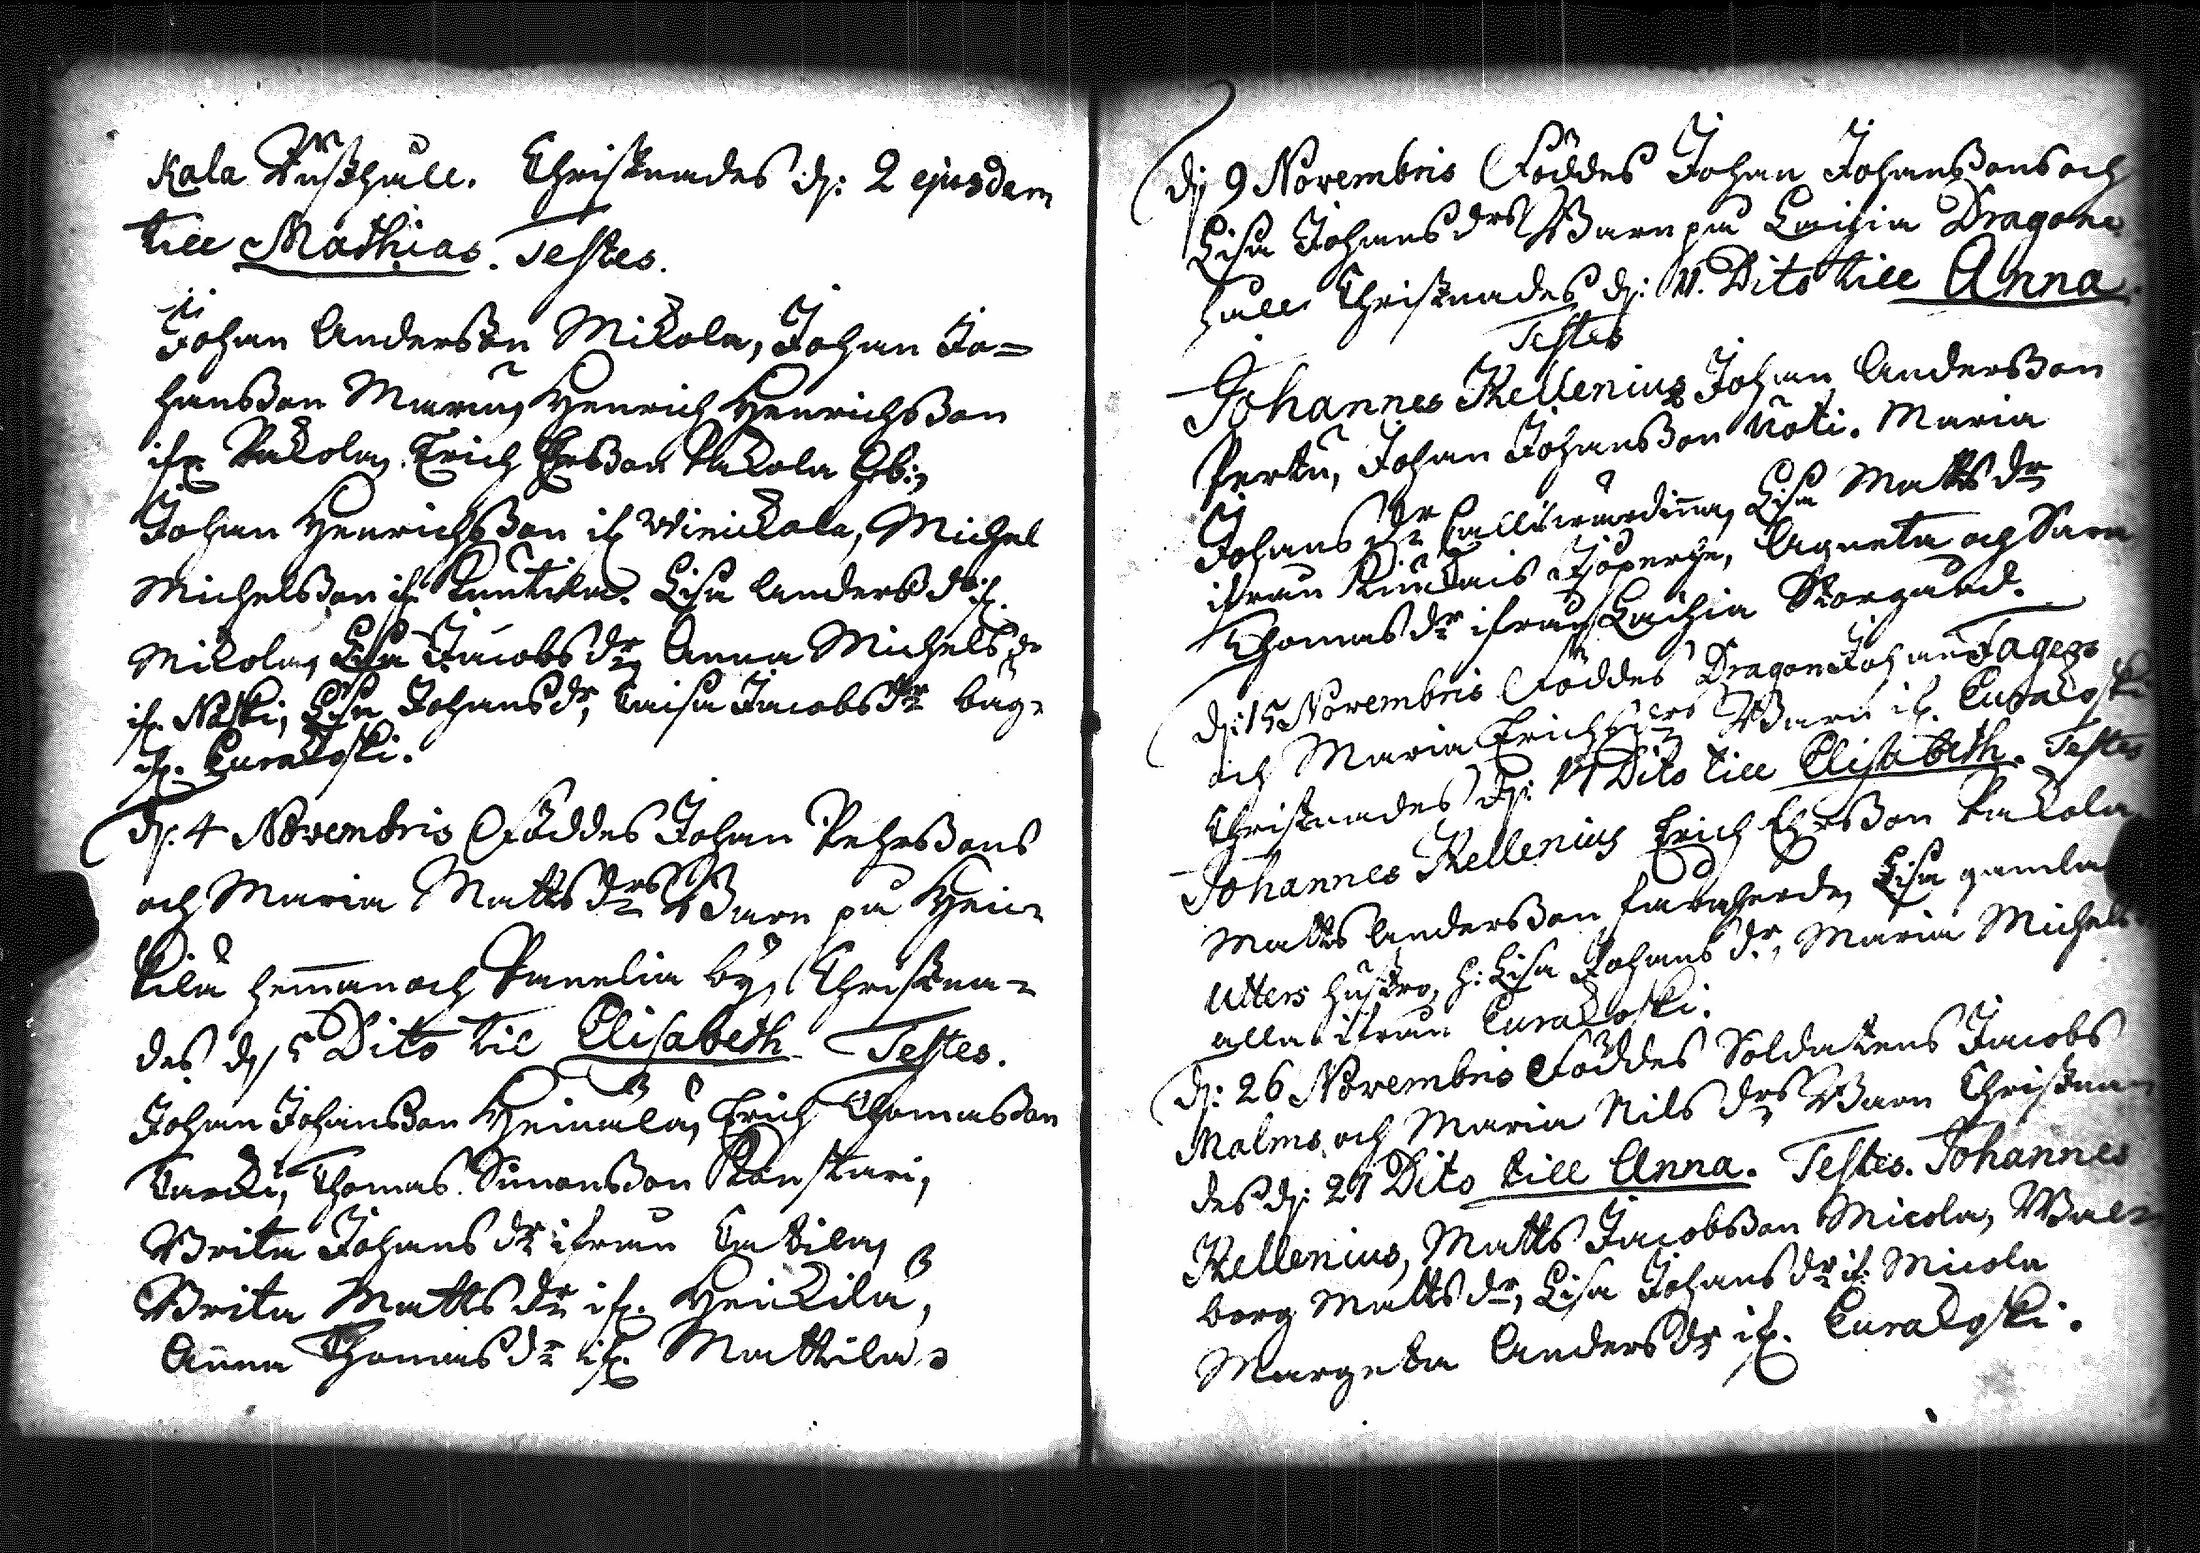 Kala Rusthåll. Christnades d: 2 ejusdem
till Mathias. Testes.
Johan Andersson Mikola, Johan Jo=
hansson Maru, Henrich Henrichsson
ifr. Pakola, Erich Ersson Pakola Gb:,
Johan Henrichsson if Winickala, Michel
Michelsson if. Kuutila. Lisa Anders dr if.
Mikola, Lisa Jacobs dr, Anna Michels dr
if. Naski, Lisa Johans dr, Caisa Jacobs dr bäg-
if. Curakoski.
d. 4 Novembris Föddes Johan Pehrssons
och Maria Matts drs Barn på Hein-
kilä hemman och Panelia by, Christna-
des d 5 Dito til Elisabeth Testes.
Johan Johansson Heinälä, Erich Thomasson
Tarcki, Thomas Simonsson Konstari,
Brita Johans dr ifrån Catila,
Brita Matts dr if. Heickilä,
Anna Thomas dr if. Mattila
d 9 Novembris Föddes Johan Johanssons och
Lisa Johans drs Barn på Laihia Dragone
håll Christnades d: 11. Dito till Anna.
Testes
Johannes Kellenius Johan Andersson
Perttu, Johan Johansson Uoti. Maria
Johans dr Lisa Matts dr
ifrån Agneta och Sara
Thomas dr ifrån Laihia Storgård.
d: 15 Novembris Föddes Dragon Johan Fagers
och Maria Erichs drs Barn if. Curakoski
Christnades d: 17 Dito till Elisabeth. Testes
Johannes Kellenius Erich Ersson Pakola
Matts Andersson Lisa gamla
Utters hustro, h: Lisa Johans dr, Maria Michels
alla ifrån Curakoski.
d: 26 Novembris Föddes Soldatens Jacobs
Malms och Maria Nils drs Barn Christna-
des d: 27 Dito till Anna. Testes. Johannes
Kellenius, Matts Jacobsson Micola, Wal-
borg Matts dr, Lisa Johans dr if. Micola
Margeta Anders dr if. Curakoski.